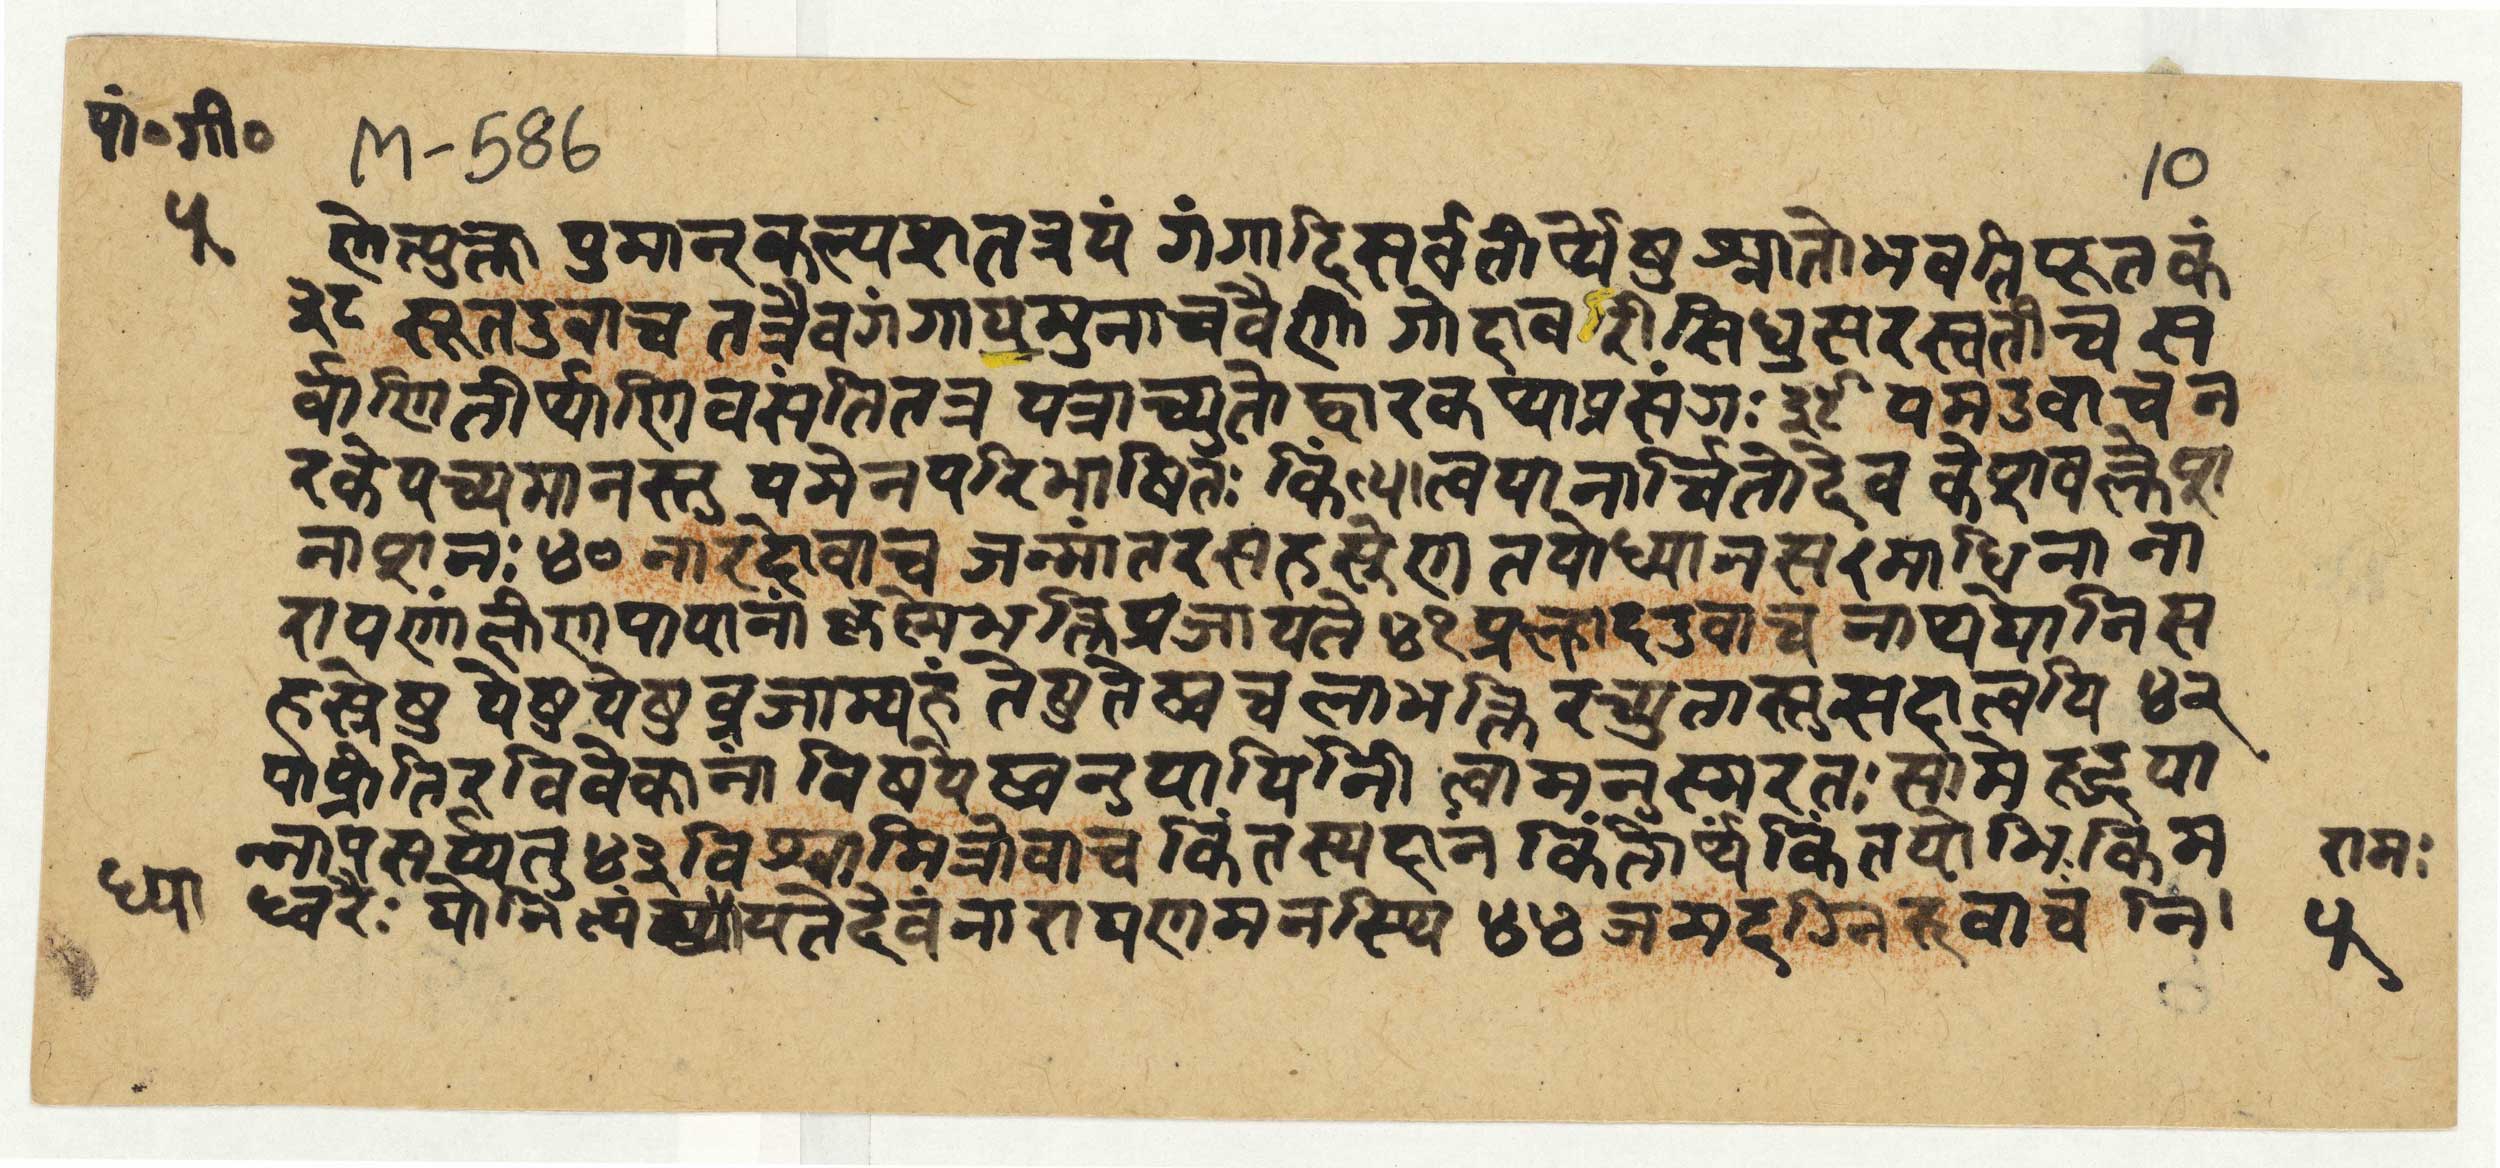 पां॰गी॰
M-586
10
५
णेत्युक्ता पुमान्कल्पशतत्रयं गंगादिसर्वतीर्थेषु स्नातोभवतिपूतकं
३८ सूतउवाच तत्रैवगंगायमुनाचवैणी गोदावरीसिंधुसरस्वतीच स
र्वाणितीर्थाणिवसंतितत्र यत्राच्युतोद्वारकथाप्रसंगः ३९ यमउवाच न
रकेपच्यमानस्तु यमेनपरिभाषितः किंत्थात्वयानार्चितोदेव केशवक्लेश
नाशनः ४० नारदोवाच जन्मांतरसहस्रेण तपोध्यानसरमाधिना ना
रायणांलीणपापानां भक्तिप्रजायते ४१ प्रह्लादउवाच नाथयोनिस
हस्रेषु येषुयेषुव्रजाम्यहं तेषुतेष्वचलाभक्तिरच्युतास्तुसदात्वयि ४२
याप्रीतिरविवेकानां विषयेष्वनुपायिनी त्वामनुस्मरतः सामेहृद्रया
न्नापसर्प्यतु ४३ विश्वामित्रोवाच किंतस्यदानं किंतीर्थंकिंतपोभिःकिम
ध्वरैः योनित्यं ध्यायतेदेवंनारायणमनस्थि ४४ जमदग्निरुवाच नि।
ध्या
रामः
५